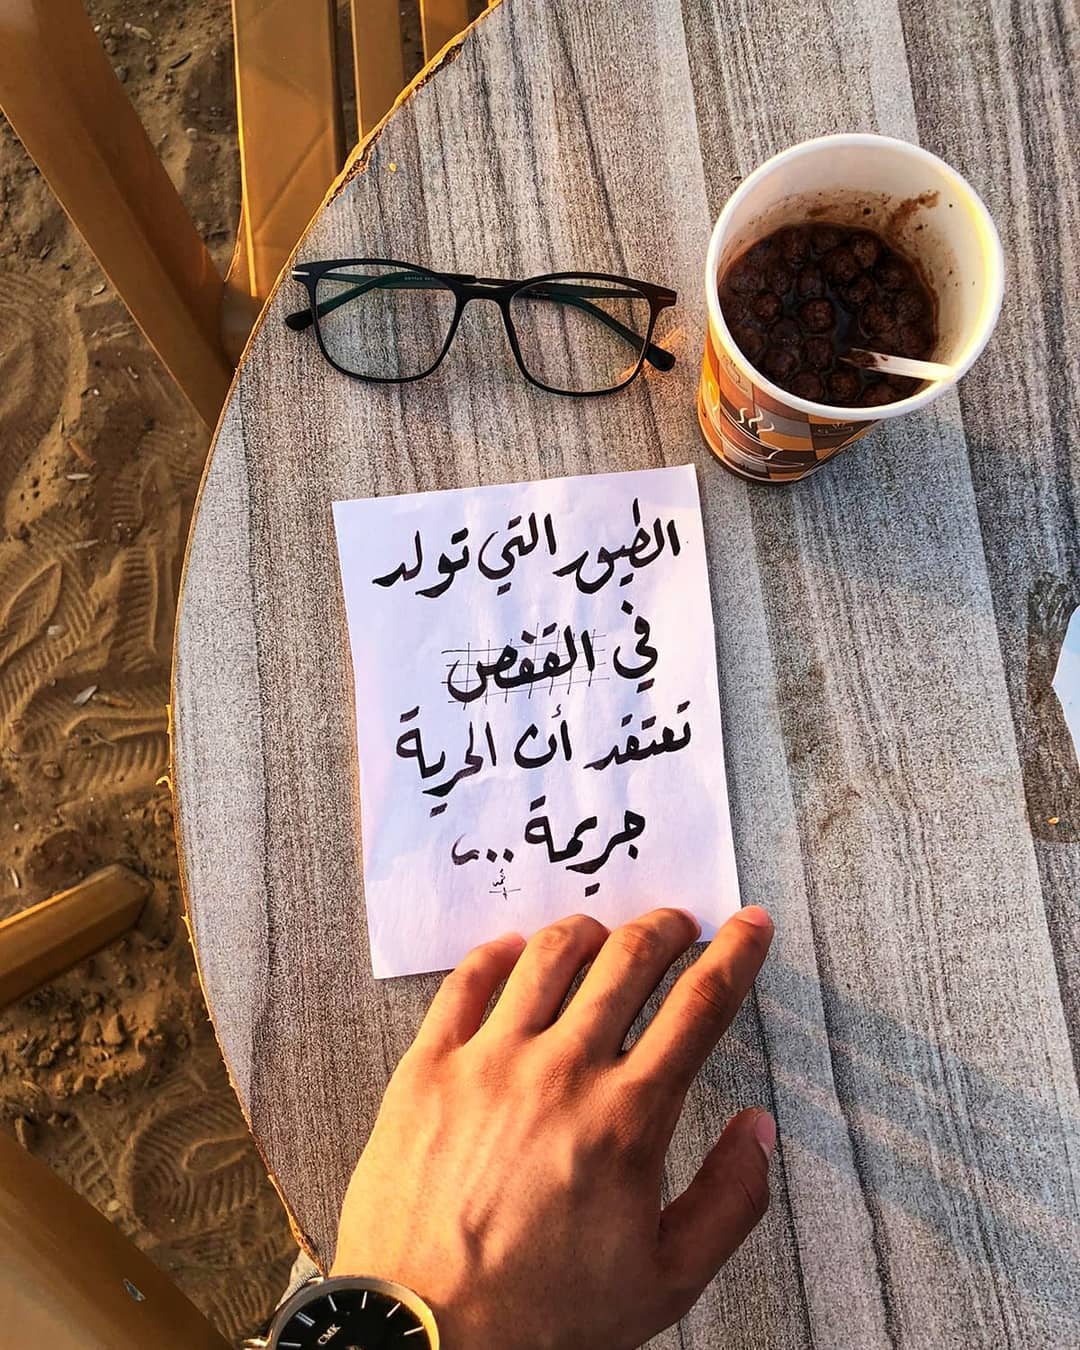 الطيور التي تولد
في القفص
تعتقد أن الحرية
جريمة ..
CMK